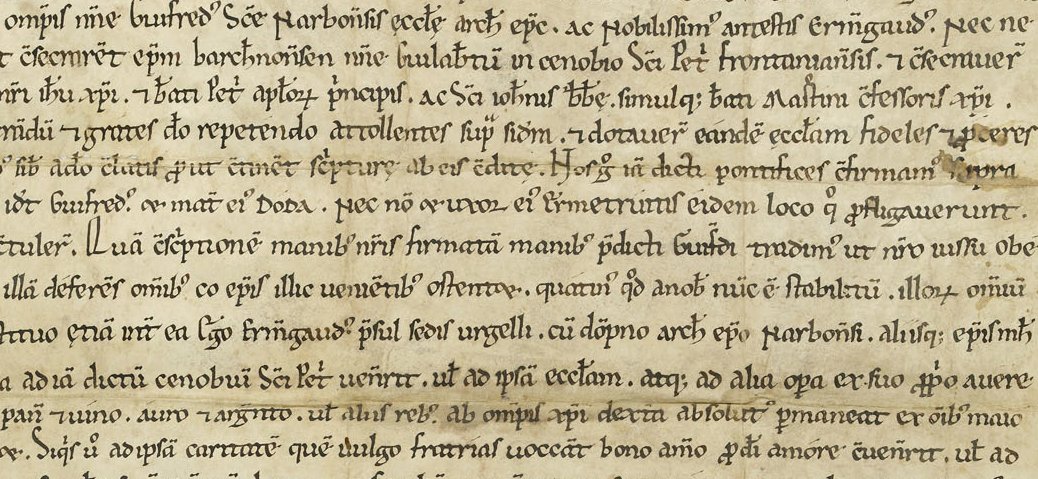 omp̄is nn̄e Guifred' Sc̄e Narbon̄sis ęccłę arch̄ ep̄c. ac Nobilissim' antestis Erm̄gaud'. Nec ne
c̄secrarēt ep̄m barchnon̄sen nn̄e Guilab̄tū in cenobio Sc̄i Pet̄ frontiniansis. ⁊ c̄secrauer̄
nr̄i ih̄u xp̄i. ⁊ b̄ati Pet̄ apł̄oꝝ p̄ncipis. ac Sc̄i ioh̄nis b̄b̄ę. simulq; b̄ati Mar̄tini c̄fessoris xp̄i.
mūdū ⁊ grates d̄o repetendo attollentes sup̄ sidm̄. ⁊ dotauer̄ eandē ęccłam fideles ⁊ ꝓceres
sib̄ a d̄o c̄latis ꝓut c̄tinēt sc̄pturę ab eis ędite. Hos ḡ iā dicti pontifices c̄firmam' Supra
id̄t Guifred'. & mat̄ ei' DODA. Nec nō & uxor ei' Ermetruitis eidem loco q̄ ꝓfligauerunt.
c̄tuler̄. Quā c̄sc̄ptionē manib' nr̄is firmatā manib' p̄dicti Guif̄di tradim' ut nr̄o iussu obe
illā deferēs om̄ib' co ep̄is illic ueniētib' ostent&. quatin' q̄d a nob̄ nūc ē stabilitū. illoꝝ om̄iū
stituo ętiā int̄ ea Ego Erm̄gaud' p̄sul sedis urgelli. cū dōpno arch̄ ep̄o Narbon̄si. aliisq; ep̄is mh̄
a ad iā dictū cenobiū Sc̄i Pet̄ uen̄rit. ul̄ ad ipsā eccłam. atq; ad alia op̄a ex suo ꝓp̄o auere
pan̄ ⁊ uino. auro ⁊ arḡnto. ul̄ aliis reb'. ab omp̄is xp̄i dextra absolut' p̄maneat ex ōib' malo
&. Siq̄s ū̊ ad ipsā caritatē quē uulgo fratrias uocāt bono aīo ꝓ d̄i amore c̄uen̄rit. ul̄ ad